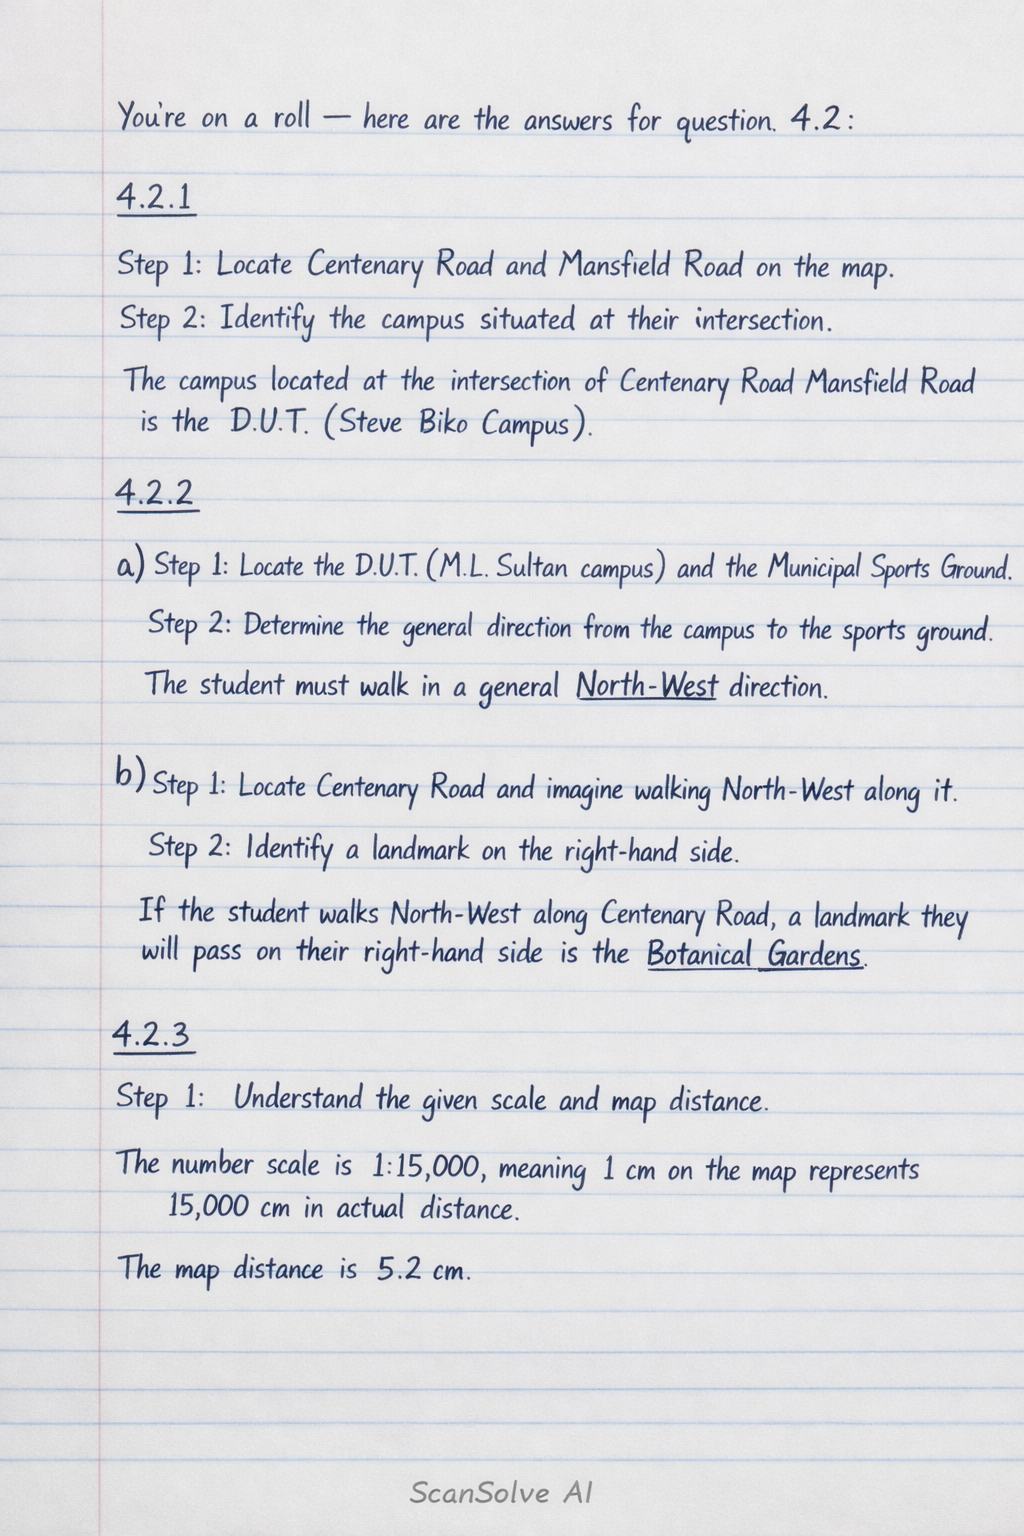 You're on a roll — here are the answers for question. 4.2:
4.2.1
Step 1: Locate Centenary Road and Mansfield Road on the map.
Step 2: Identify the campus situated at their intersection.
The campus located at the intersection of Centenary Road Mansfield Road
is the D.U.T. (Steve Biko Campus).
4.2.2
a) Step 1: Locate the D.U.T. (M.L. Sultan campus) and the Municipal Sports Ground.
Step 2: Determine the general direction from the campus to the sports ground.
The student must walk in a general North-West direction.
b) Step 1: Locate Centenary Road and imagine walking North-West along it.
Step 2: Identify a landmark on the right-hand side.
If the student walks North-West along Centenary Road, a landmark they
will pass on their right-hand side is the Botanical Gardens.
4.2.3
Step 1: Understand the given scale and map distance.
The number scale is 1:15,000, meaning 1 cm on the map represents
15,000 cm in actual distance.
The map distance is 5.2 cm.
ScanSolve AI